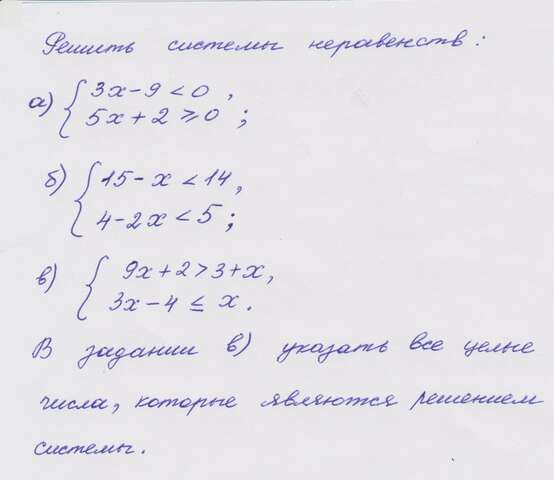 Решить системы неравенств:
а) { 3x-9<0,
5x+2⩾0;
б) { 15-x<14,
4-2x<5;
в) { 9x+2>3+x,
3x-4≤x.
В задании в) указать все целые
числа, которые являются решением
системы.